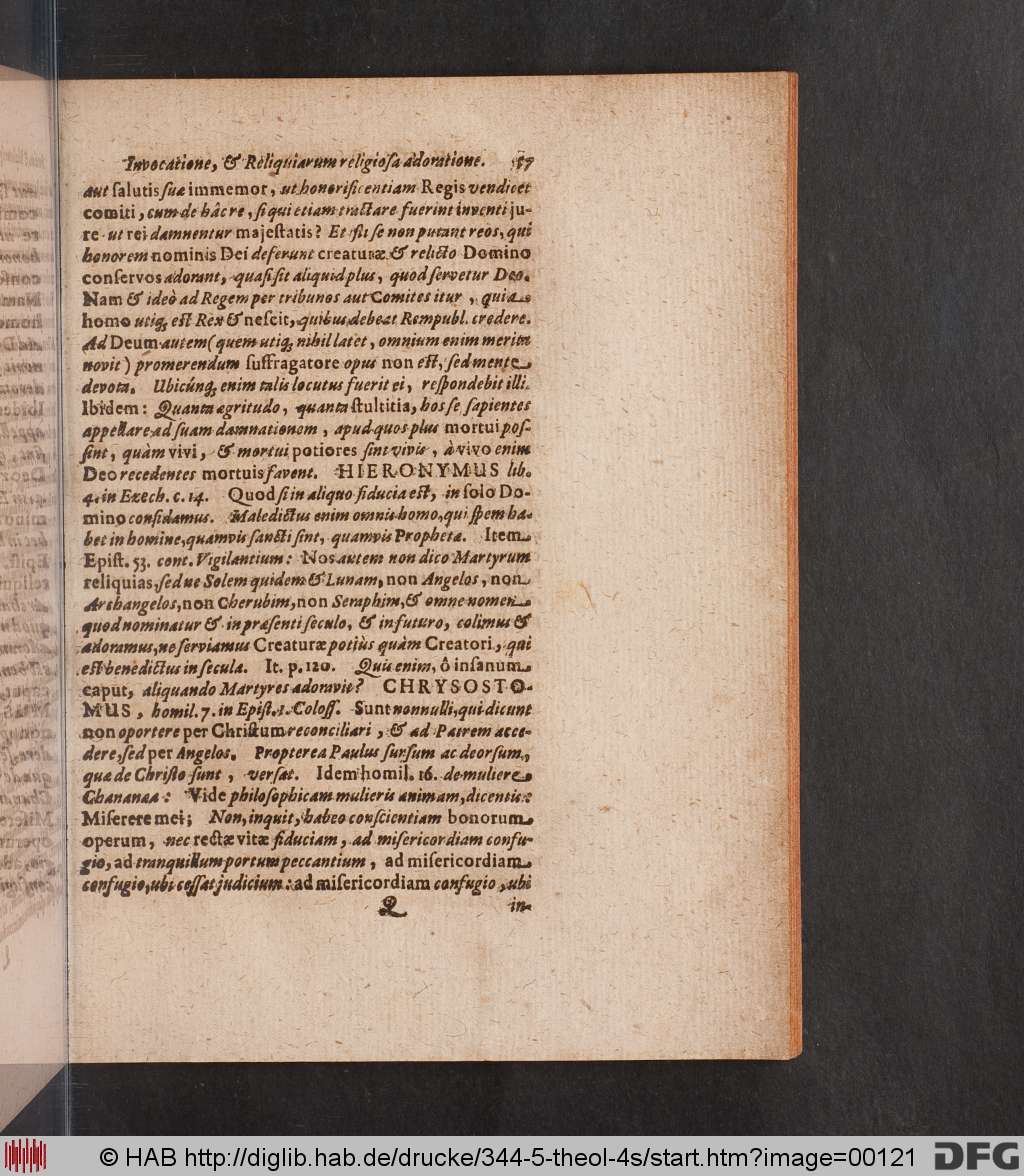 Invocatione, & Reliquiarum religiosa adoratione. 57
aut salutis suæ immemor, ut honorificentiam Regis vendicet
comiti, cum de hâc re, si qui etiam tractare fuerint inventi ju-
re ut rei damnentur majestatis? Et isti se non putant reos, qui
honorem nominis Dei deferunt creaturæ & relicto Domino
conservos adorant, quasi sit aliquid plus, quod servetur Deo.
Nam & ideò ad Regem per tribunos aut Comites itur, quia
homo utiq; est Rex & nescit, quibus debeat Rempubl. credere.
Ad Deum autem (quem utiq; nihil latet, omnium enim merita
novit) promerendum suffragatore opus non est, sed mente
devota. Ubicúnq; enim talis locutus fuerit ei, respondebit illi.
Ibidem: Quanta ægritudo, quanta stultitia, hos se sapientes
appellare ad suam damnationem, apud quos plus mortui pos-
sint, quàm vivi, & mortui potiores sint vivis, à vivo enim
Deo recedentes mortuis favent. HIERONYMUS lib.
4. in Ezech. c. 14. Quod si in aliquo fiducia est, in solo Do-
mino confidamus. Maledictus enim omnis homo, qui spem ha-
bet in homine, quamvis sancti sint, quamvis Prophetæ. Item
Epist. 53. cont. Vigilantium: Nos autem non dico Martyrum
reliquias, sed ne Solem quidem & Lunam, non Angelos, non
Archangelos, non Cherubim, non Seraphim, & omne nomen
quod nominatur & in præsenti seculo, & in futuro, colimus &
adoramus, ne serviamus Creaturæ potiùs quàm Creatori, qui
est benedictus in secula. It. p. 120. Quis enim, ô insanum
caput, aliquando Martyres adoravit? CHRYSOSTO-
MUS, homil. 7. in Epist. 1. Coloss. Sunt nonnulli, qui dicunt
non oportere per Christum reconciliari, & ad Patrem acce-
dere, sed per Angelos. Propterea Paulus sursum ac deorsum,
quæ de Christo sunt, versat. Idem homil. 16. de muliere
Chananæa: Vide philosophicam mulieris animam, dicentis:
Miserere mei; Non, inquit, habeo conscientiam bonorum
operum, nec rectæ vitæ fiduciam, ad misericordiam confu-
gio, ad tranquillum portum peccantium, ad misericordiam
confugio, ubi cessat judicium: ad misericordiam confugio, ubi
Q in-
© HAB http://diglib.hab.de/drucke/344-5-theol-4s/start.htm?image=00121
DFG